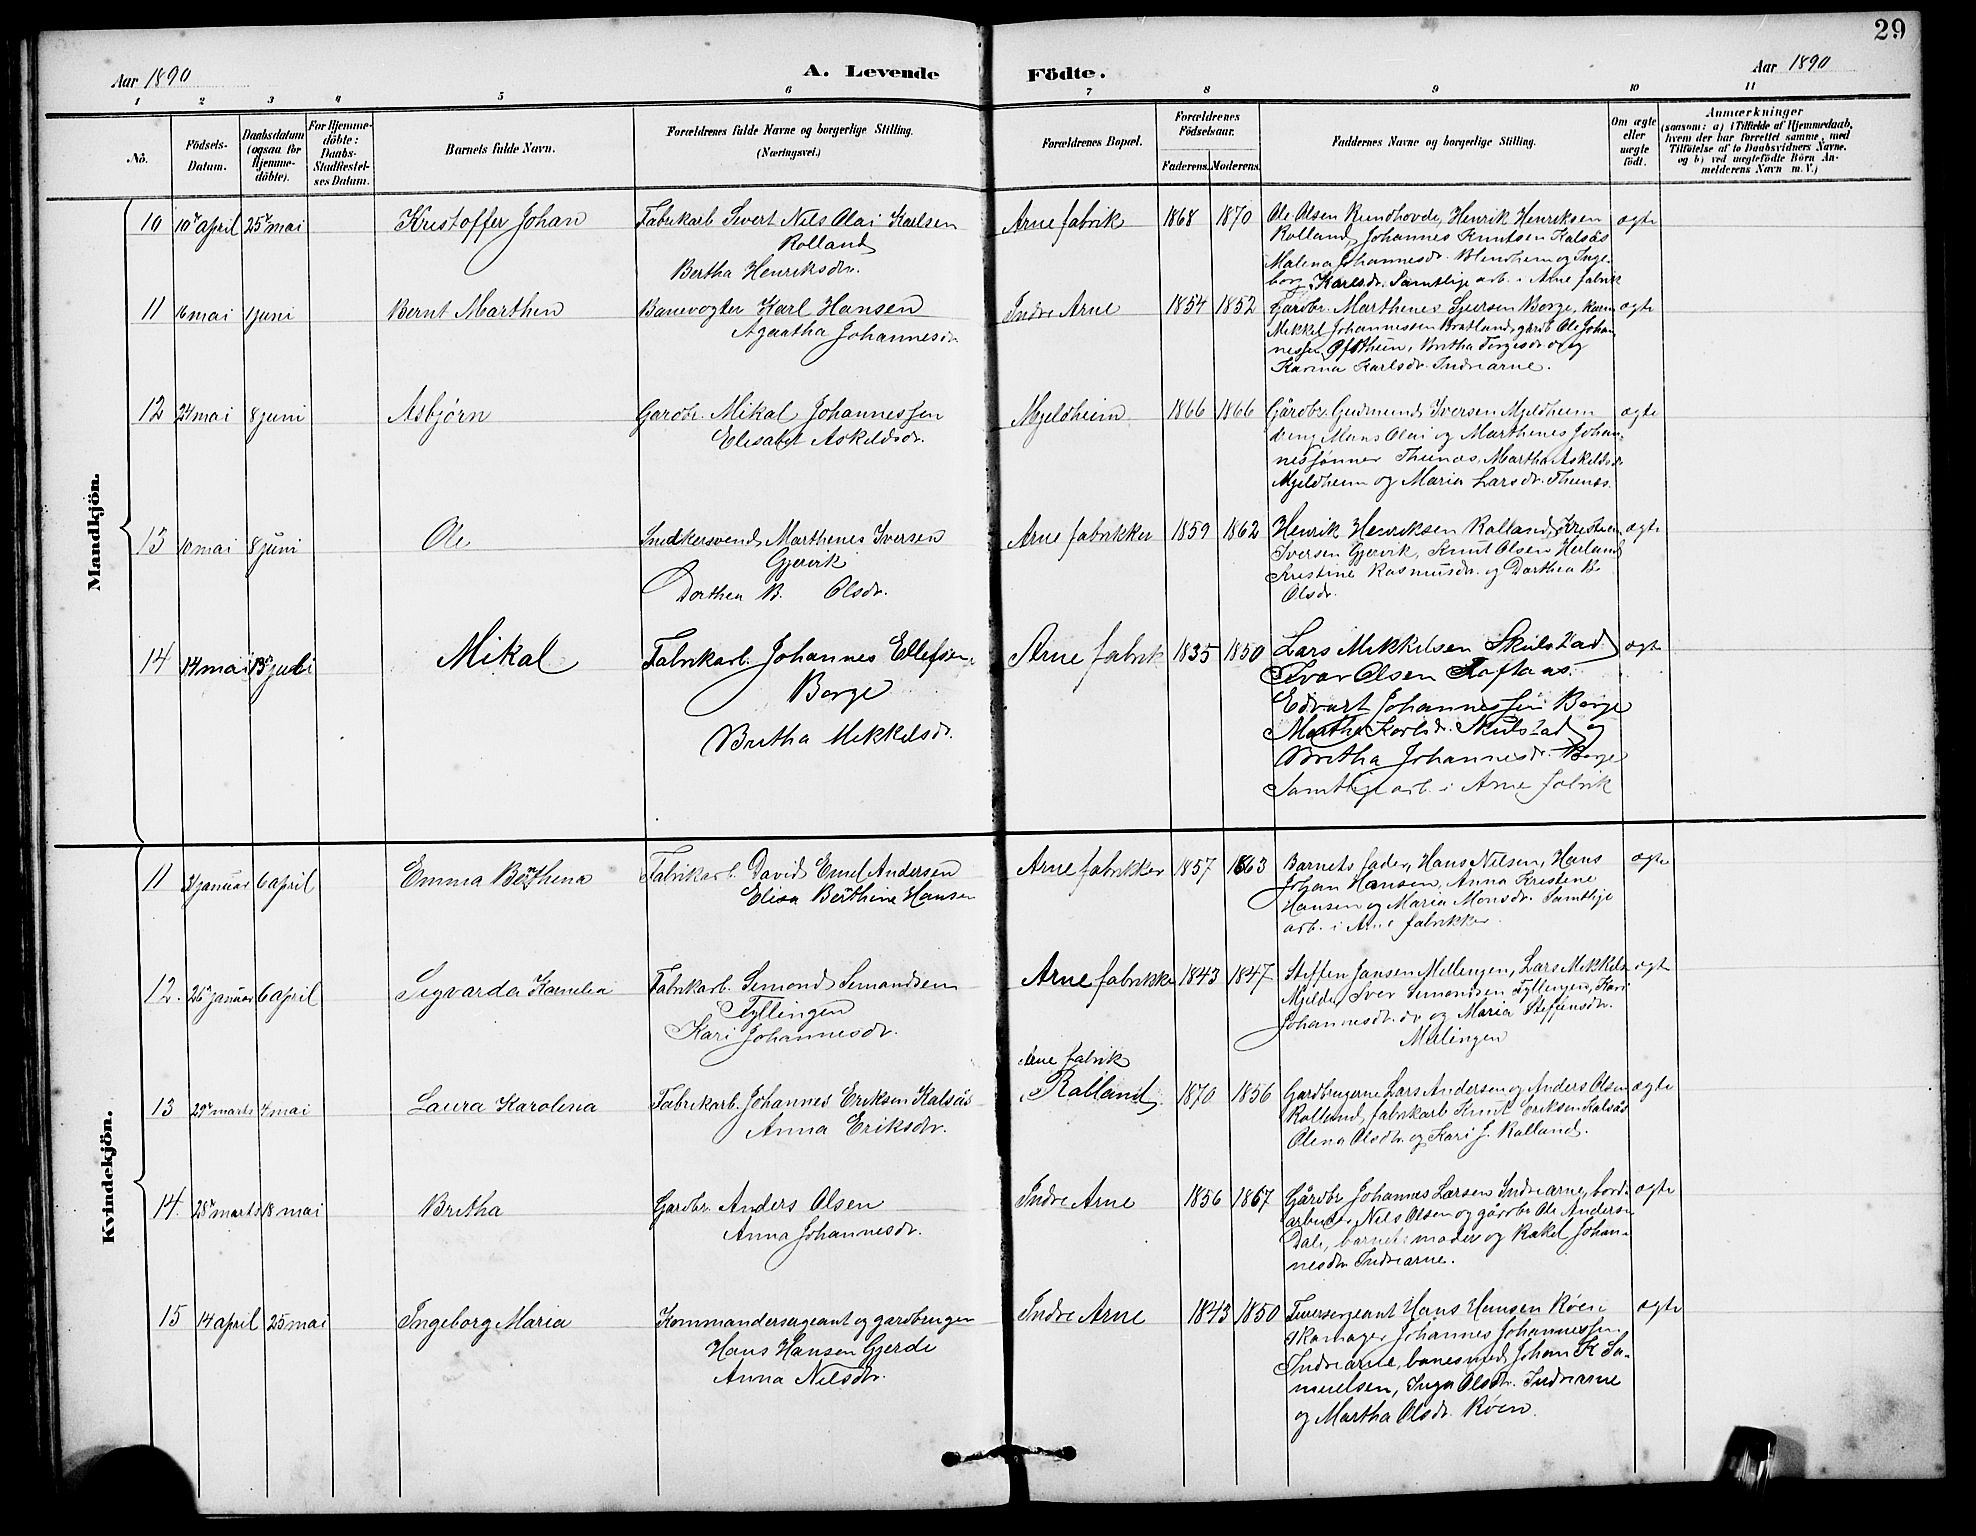 29
Aar 1890
A. Levende Födte.
Aar 1890
1 2 3 4 5 6 7 8 9 10 11
Nô.
Födsels-
Datum.
Daabsdatum
(ogsaa for
Hjemme-
döbte).
For Hjemme-
döbte:
Daabs-
Stadfæstel-
ses Datum.
Barnets fulde Navn.
Forældrenes fulde Navne og borgerlige Stilling.
(Næringsvei.)
Forældrenes Bopæl.
Forældrenes
Födselsaar.
Faderens. Moderens.
Faddernes Navne og borgerlige Stilling.
Om ægte
eller
uægte
födt.
Anmærkninger
(saasom: a) i Tilfælde af Hjemmedaab,
hvem der har forrettet samme, med
Tilföielse af to Daabsvidners Navne.
og b) ved uægtefödte Börn An-
melderens Navn m. V.)
Mandkjön.
10 10de april 25de mai Kristoffer Johan
Fabrikarb Sivert Nils Olai Karlsen
Rolland
Bertha Henriksdr.
Arne fabrik 1868 1870
Ole Olsen Rundhovde, Henrik Henriksen
Rolland, Johannes Knutsen Kalsås
Malena Johannesdr. Blindheim og Inge-
borg Karlsdr. Samtlige arb. i Arne fabrik
ægte
11 16 mai 1 juni Bernt Marthen
Banevogter Karl Hansen
Agaatha Johannesdr
Indre Arne 1854 1852
Gårdbr. Marthenes Sjursen Borge,
Mikkel Johannessen Bratland, gårdb Ole Johan
nessen, Britha og
Karina Karlsdr. Indrearne.
ægte
12 24 mai 8 juni Asbjørn
Gardbr. Mikal Johannessen
Elisabet Askeldsdr.
Mjeldheim 1866 1866
Gårdbr. Gudmund Iversen Mjeldheim
dreng Mons Olai og Marthenes Johan-
nessønner Thunæs, Martha Askeldsdr
Mjeldheim og Maria Larsdr. Thunæs.
ægte
13 10 mai 8 juni Ole
Snedkersvend Marthenes Iversen
Gjervik
Dorthea B. Olsdr.
Arne fabrikker 1859 1862
Henrik Henriksen Rolland, Kristen
Iversen Gjervik, Knut Olsen Herland
Kristine Rasmusdr. og Dorthea B.
Olsdr.
ægte
14 14 mai 13de juli Mikal
Fabrikarb. Johannes Ellefsen
Borge
Britha Mikkelsdr.
Arne fabrik 1835 1850
Lars Mikkelsen Skulstad
Ivar Olsen Toftaas.
Edvart Johannessen Borge
Martha Karlsdr. Skulstad og
Britha Johannesdr. Borge
Samtlige arb. i Arne fabrik
ægt
Kvindekjön.
11 31 januar 6 april Emma Berthena
Fabrikarb. David Emel Andersen
Elisa Berthine Hansen
Arne fabrikker 1857 1863
Barnets fader, Hans Nilsen, Hans
Johan Hansen, Anna Kristene
Hansen og Maria Monsdr. Samtlige
arb. i Arne fabrikker.
ægte
12. 26de januar 6 april Sigvarda Kornelia
Fabrikarb. Simond Simondsen
Tyllingen
Kari Johannesdr.
Arne fabrikke 1843 1847
Steffen Jansen Mellingen, Lars Mikkels
Mjelde, Iver Simondsen Tyllingen, Kari
Johannesdr. og Maria Steffensdr.
Melingen
ægte
13 29de marts 4 mai Laura Karolena
Fabrikarb. Johannes Eriksen Kalsås
Anna Eriksdr.
Arne fabrik
Rolland 1870 1856
Gardbrugerne Lars Andersen og Anders Olsen
Rolland, fabrikarb Knut Eriksen Kalsås
Olena Olsdr. og Kari J. Rolland.
ægte
14. 28de marts 18 mai Britha
Gardbr. Anders Olsen
Anna Johannesdr.
Indre Arne 1856 1867
Gårdbr Johannes Larsen Indrearne, bord-
arbeider Nils Olsen og gårdbr Ole Anders
Dale, barnets moder og Rakel Johan-
nesdtr Indrearne.
ægte
15 14 april 25 mai Ingeborg Maria
Kommandersergeant og gardbruger
Hans Hansen Gjerde
Anna Nilsdtr.
Indre Arne 1843 1850
Hans Hansen Røen
skomager Johannes Johannessen
Indrearne, Johan K Sa-
muelsen, Inga Olsdtr. Indrearne
og Martha Olsdr. Røen.
ægte